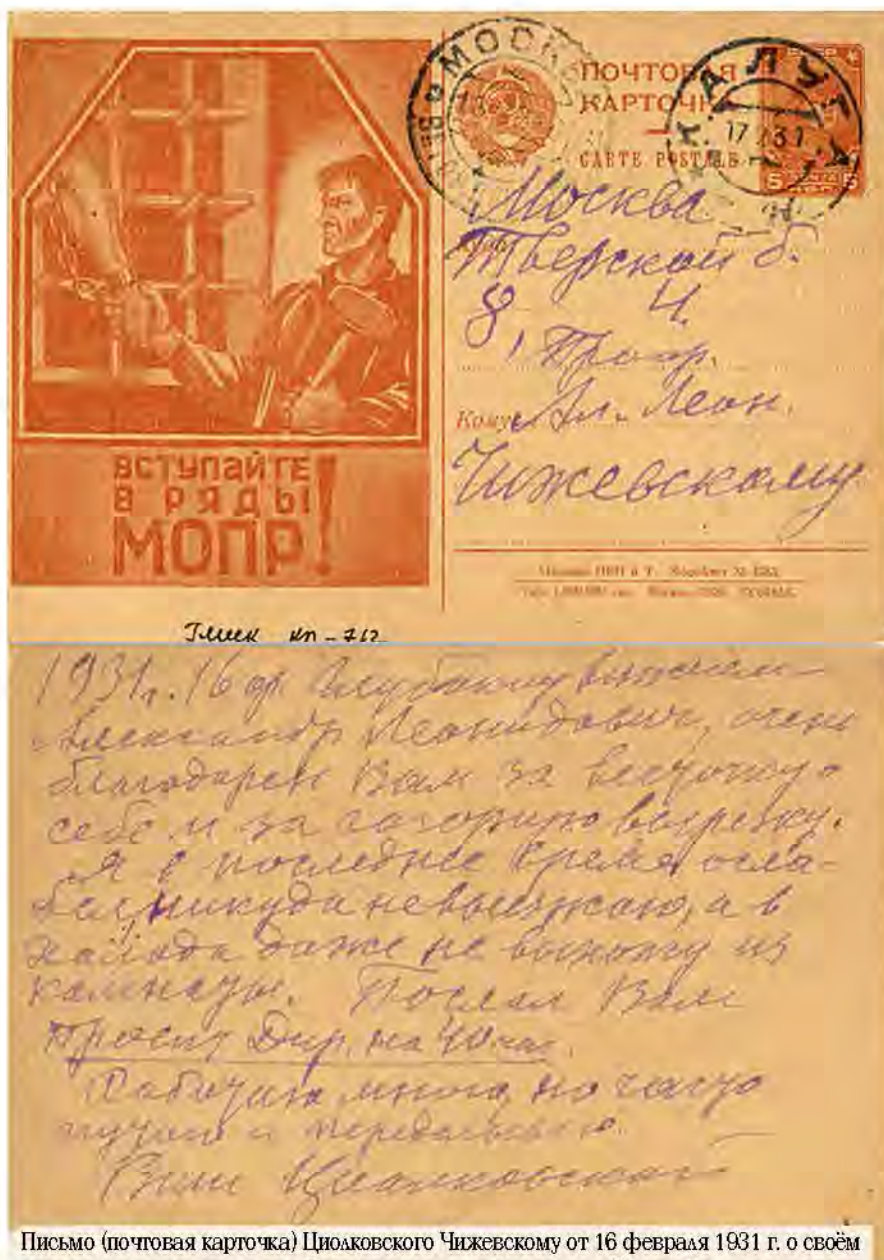 МОСК
ПОЧТОВАЯ
КАРТОЧК
CARTE POSTALE
КАЛУГА
17 2 31
5 5
Москва
Тверской б.
8, 4.
Проф.
Кому Ал. Леон.
Чижевскому
ВСТУПАЙТЕ
В РЯДЫ
МОПР!
1931 г. 16 ф. Глубокоуважаемый
Александр Леонидович, очень
благодарен Вам за весточку о
себе и за вырезку.
Я в последнее время осла-
бел, никуда не выезжаю, а в
холода даже не выхожу из
комнаты. Послал Вам
Проект Дир. на 40 час.
Работаю много, но часто
и переделываю.
Ваш Циолковский
Письмо (почтовая карточка) Циолковского Чижевскому от 16 февраля 1931 г. о своём